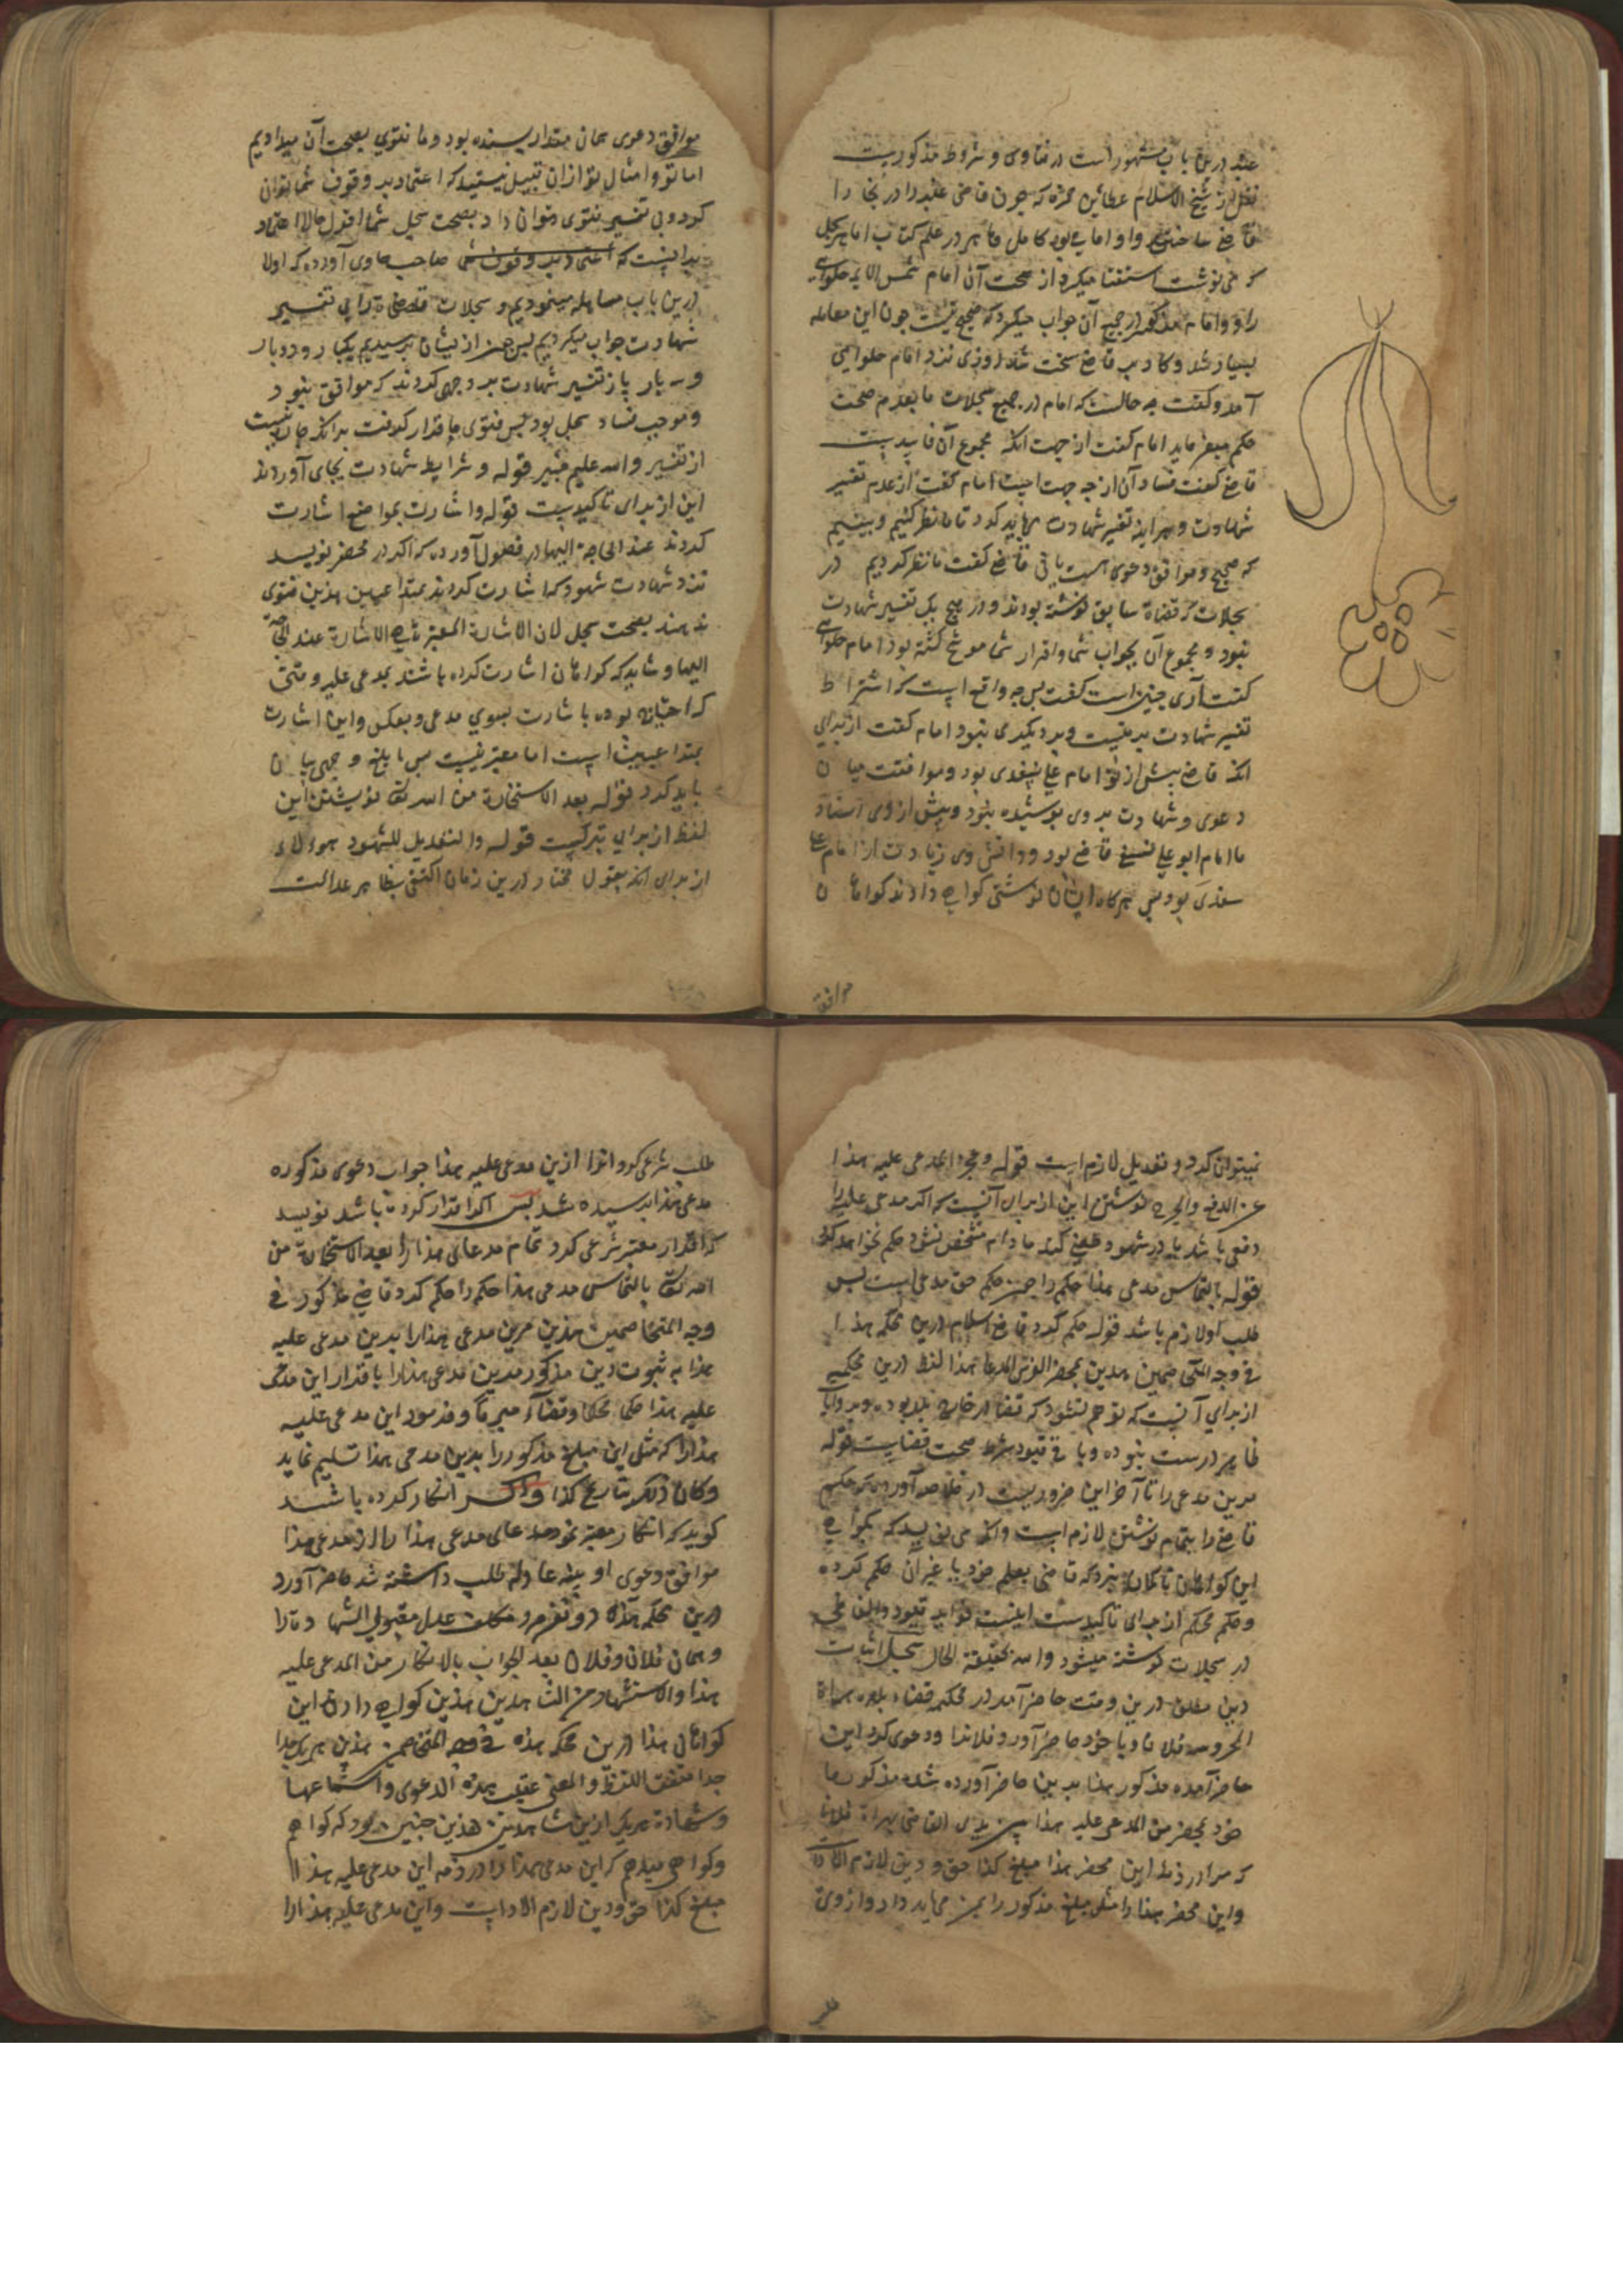 عنبه درین باب مشهور است در فتاوی و شروط مذکوریست
نقل از شیخ الاسلام عطا بن حمزه که چون قاضی عنبه را در بخارا
قاضی ساختند و او امامی بود کامل و ماهر در علم کتاب اما هر سجلی
که می نوشت استفتا میکرد از صحت آن امام شمس الایمه حلوائی
را و وامام مذکور در جمیع آن جواب میکرد که صحیح نیست چون این معامله
بسیار شد و کار بر قاضی سخت شد روزی نزد امام حلوائی
آمد و گفت چه حالست که امام در جمیع سجلات ما بعدم صحت
حکم میفرماید امام گفت از جهت آنکه مجموع آن فاسدست
قاضی گفت فساد آن از چه جهت است امام گفت از عدم تفسیر
شهادت و هر آینه تفسیر شهادت می باید کرد تا ما نظر کنیم و ببینیم
که صحیح و موافق دعوی هست یا نی قاضی گفت ما نظر کردیم در
سجلات که قضاة سابق نوشته بودند و در هیچ یک تفسیر شهادت
نبود و مجموع آن بجواب شما و اقرار شما موشح گشته بود امام حلوائی
گفت آری چنین است گفت پس چه واقع است که اشتراط
تفسیر شهادت بر منست و بر دیگری نبود امام گفت از برای
آنکه قاضی پیش از تو امام علی سغدی بود و موافقت میان
دعوی و شهادت بر وی پوشیده نبود و پیش از وی استاد
ما امام ابو علی نسفی قاضی بود و دانش وی زیادت از امام علی
سغدی بود پس هرگاه ایشان نوشتی گواهی دادند گواهان
موافق
موافق دعوی همان مقدار بسنده بود و ما فتوی بصحت آن میدادیم
اما تو و امثال تو ازان قبیل نیستید که اعتماد بر وقوف شما توان
کرد و بی تفسیر فتوی توان داد بصحت سجل شما اقول حالا اعتماد
بر آنیست که اعتماد بر وقوف شما صاحب حاوی آورده که اولا
درین باب مساهله مینمودیم و سجلات قضاة را بی تفسیر
شهادت جواب میکردیم پس چون از ایشان پرسیدیم یکبار و دو بار
و سه بار باز تفسیر شهادت بر وجهی کردند که موافق نبود
و موجب فساد سجل بود پس فتوی ما قرار گرفت بر آنکه چاره نیست
از تفسیر والله علیم خبیر قوله و شرایط شهادت بجای آوردند
این از برای تاکیدیست قوله و اشارت بمواضع اشارت
کردند عند الحاجة الیها در فصول آورده که اگر در محضر نویسد
نزد شهادت شهود که اشارت کردند بمتداعیین هذین فتوی
ندهند بصحت سجل لان الاشارة المعتبرة هی الاشارة عند الحاجة
الیها و شاید که گواهان اشارت کرده باشند بمدعی علیه وقتی
که احتیاج بوده باشارت بسوی مدعی و بعکس و این اشارت
بمتداعیین است اما معتبر نیست پس بابلغ وجهی بیان
باید کرد قوله بعد الاستخارة من الله تعالی نوشتن این
لفظ از برای تبرکست قوله والتعدیل للشهود هؤلاء
از برای آنکه بقول مختار درین زمان اکتفی بظاهر عدالت
نمیتوان کرد و تعدیل لازم است قوله و عجز المدعی علیه هذا
عن الدفع والجرح نوشتن این از برای آنست که اگر مدعی علیه را
دفعی باشد یا در شهود طعنی کند مادام مشخص نشود حکم نخواهد کرد
قوله بالتماس مدعی هذا حکم را چون حکم حق مدعی است پس
طلب او لازم باشد قوله حکم کرد قاضی اسلام درین محکمه هذا
فی وجه المتخاصمین هذین بمحضر المدعا هذا لفظ درین محکمه
از برای آنست که توهم نشود که قضا در خارج بلد بوده و بر روایت
ظاهر درست نبوده و باقی قیود شرط صحت قضایست قوله
مرین مدعی را تا آخر این ضروریست در خلاصه آورده که حکم
قاضی را بتمام نوشتن لازم است و آنکه می نویسد که بگواهی
این گواهان تا گمان نبرند که قاضی بعلم خود یا غیر آن حکم کرده
و حکم محکم از برای تاکیدست اینست فواید قیود و الفاظی که
در سجلات نوشته میشود والله بحقیقة الحال سجل اثبات
دین مطلق درین وقت حاضر آمد در محکمه قضاء بلده هراة
المحروسه فلان و با خود حاضر آورد فلانرا و دعوی کرد این
حاضر آمده مذکور هذا برین حاضر آورده شده مذکور هذا
خود بمحضر من المدعی علیه هذا بین یدی القاضی بهراة فلان
که مرا در ذمه این محضر هذا مبلغ کذا حق و دین لازم الاداست
و این محضر هذا را مثل مبلغ مذکور را بمن می باید داد و از وی
طلب
طلب شرعی کرد و انرا ازین مدعی علیه هذا جواب دعوی مذکوره
مدعی هذا پرسیده شد پس اگر اقرار کرده باشد نویسد
که اقرار معتبر شرعی کرد تمام مدعای هذا را بعد الاستخارة من
الله تعالی بالتماس مدعی هذا حکم را حکم کرد قاضی مذکور فی
وجه المتخاصمین هذین مرین مدعی هذا را برین مدعی علیه
هذا به ثبوت دین مذکور مرین مدعی هذا را باقرار این مدعی
علیه هذا حکما محکما و قضاء مبرما و فرمود این مدعی علیه
هذا را که مثل این مبلغ مذکور را بدین مدعی هذا تسلیم نماید
و کان ذلک بتاریخ کذا و اگر انکار کرده باشد
گوید که انکار معتبر نمود مدعای مدعی هذا را از مدعی هذا
موافق دعوی او بینه عادله طلب داشته شد حاضر آورد
درین محکمه هذه دو نفر مرد مکلف عدل مقبول الشهادة را
و همان فلان و فلان بعد الجواب بالانکار من المدعی علیه
هذا و الاستشهاد من الشاهدین هذین گواهی دادن این
گواهان هذا درین محکمه هذه فی وجه المتخاصمین هذین هر یک جدا
جدا متفقة اللفظ و المعنی عقیب هذه الدعوی و استماعها
و شهادة هر یک ازین شاهدین هذین چنین بود که گواهم
و گواهی میدهم که این مدعی هذا را در ذمه این مدعی علیه هذا
مبلغ کذا حق و دین لازم الاداست و این مدعی علیه هذا را